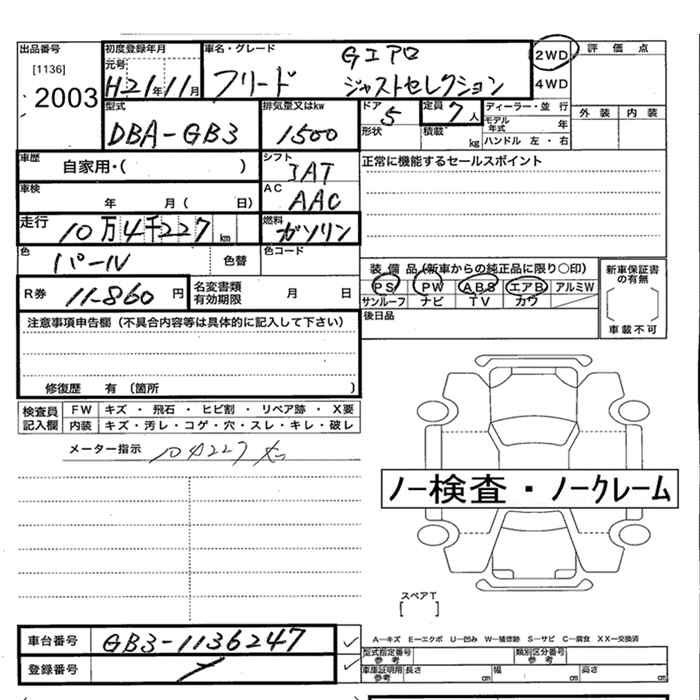 出品番号
[1136]
2003
初度登録年月
元号
H21年11月
車名・グレード
フリード
Gエアロ
ジャストセレクション
2WD
4WD
評価点
外装 内装
型式
DBA-GB3
排気量又はkw
1500
ドア
5
形状
定員
7人
積載
kg
ディーラー・並行
モデル年式 年
ハンドル 左・右
車歴
自家用・( )
シフト
AC
AAC
正常に機能するセールスポイント
車検
年 月( 日)
走行
10万4千227km
燃料
ガソリン
色
パール
色替
色コード
R券
11-860円
名変書類有効期限 月 日
装備品(新車からの純正品に限り〇印)
PS PW ABS エアB アルミW
サンルーフ ナビ TV カワ
後日品
新車保証書の有無
車載不可
注意事項申告欄(不具合内容等は具体的に記入して下さい)
修復歴 有(箇所 )
検査員記入欄
FW キズ・飛石・ヒビ割・リペア跡・X要
内装 キズ・汚レ・コゲ・穴・スレ・キレ・破レ
メーター指示
ノー検査・ノークレーム
スペアT
[ ]
車台番号
GB3-1136247
登録番号
A-キズ E-エクボ U-凹み W-補修跡 S-サビ C-腐食 XX-交換済
型式指定番号 参考
類別区分番号 参考
車庫証明用 参考
長さ cm 幅 cm 高さ cm